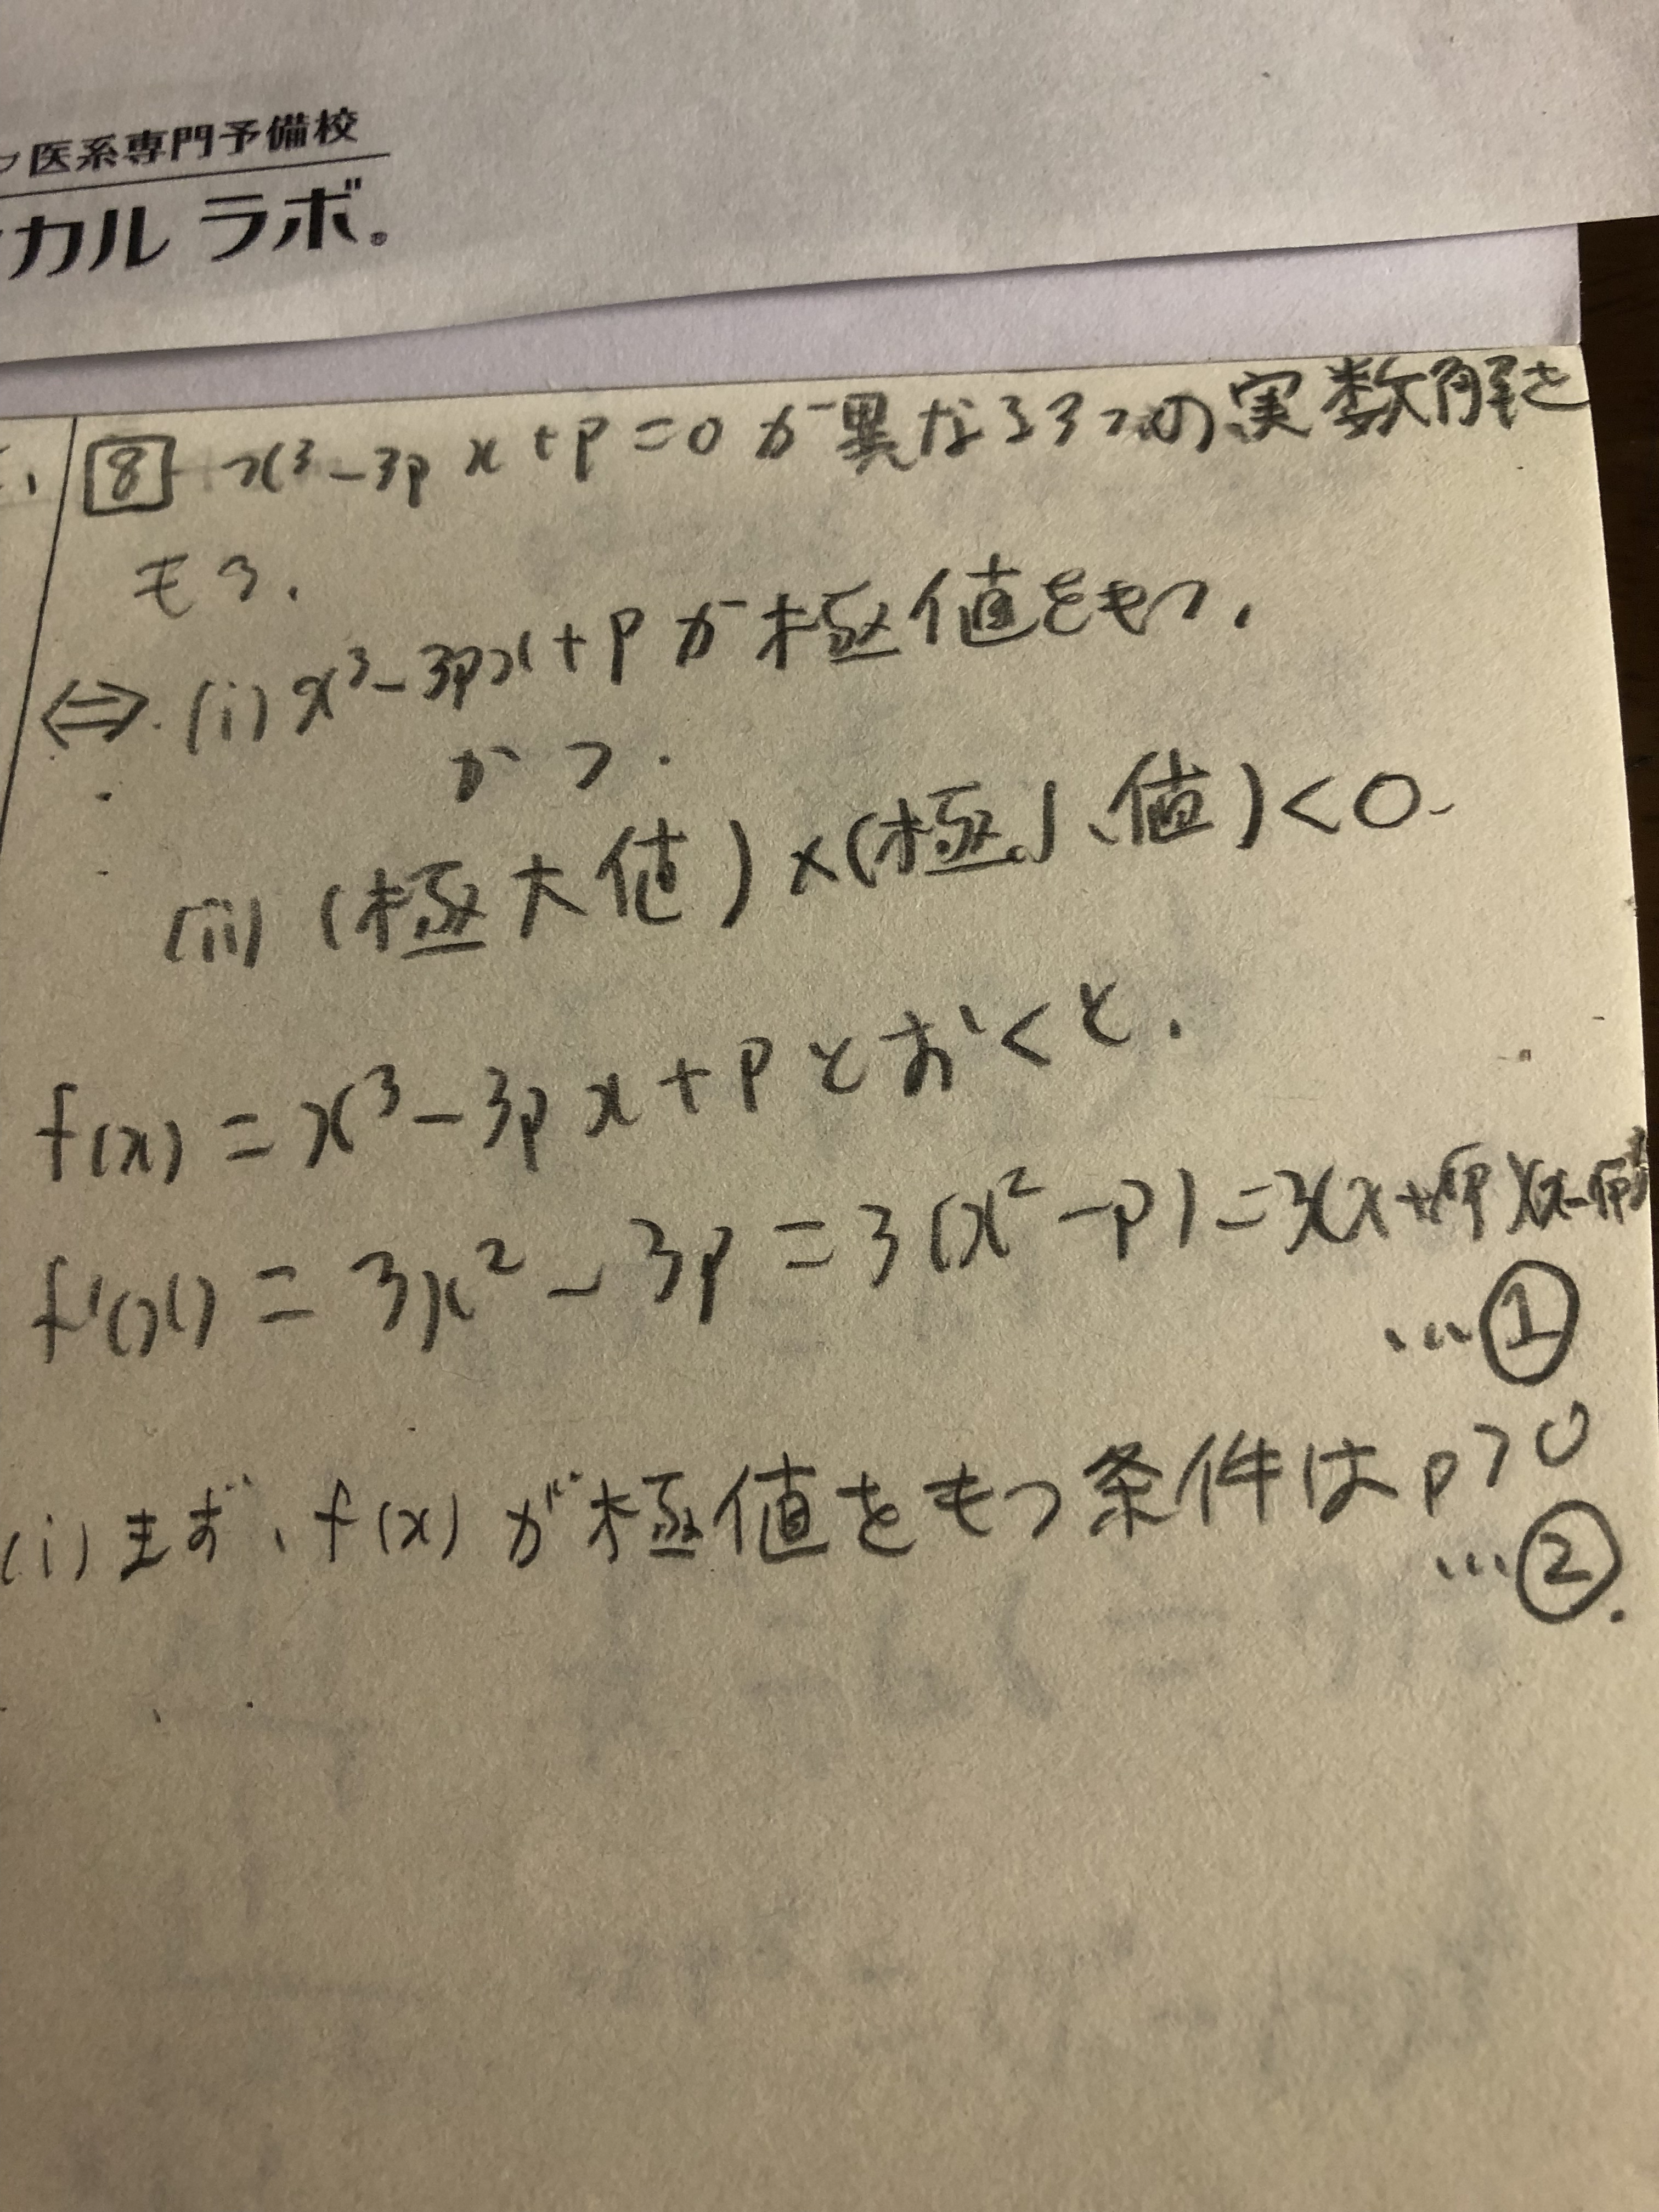 医系専門予備校
カル ラボ®
8 x³-3px+p=0が異なる3つの実数解を
もつ.
⇔ (i) x³-3px+pが極値をもつ.
かつ.
(ii) (極大値)×(極小値)<0.
f(x)=x³-3px+pとおくと.
f'(x)=3x²-3p=3(x²-p)=3(x+√p)(x-√p)
…①
(i)まず、f(x)が極値をもつ条件はp>0
…②.